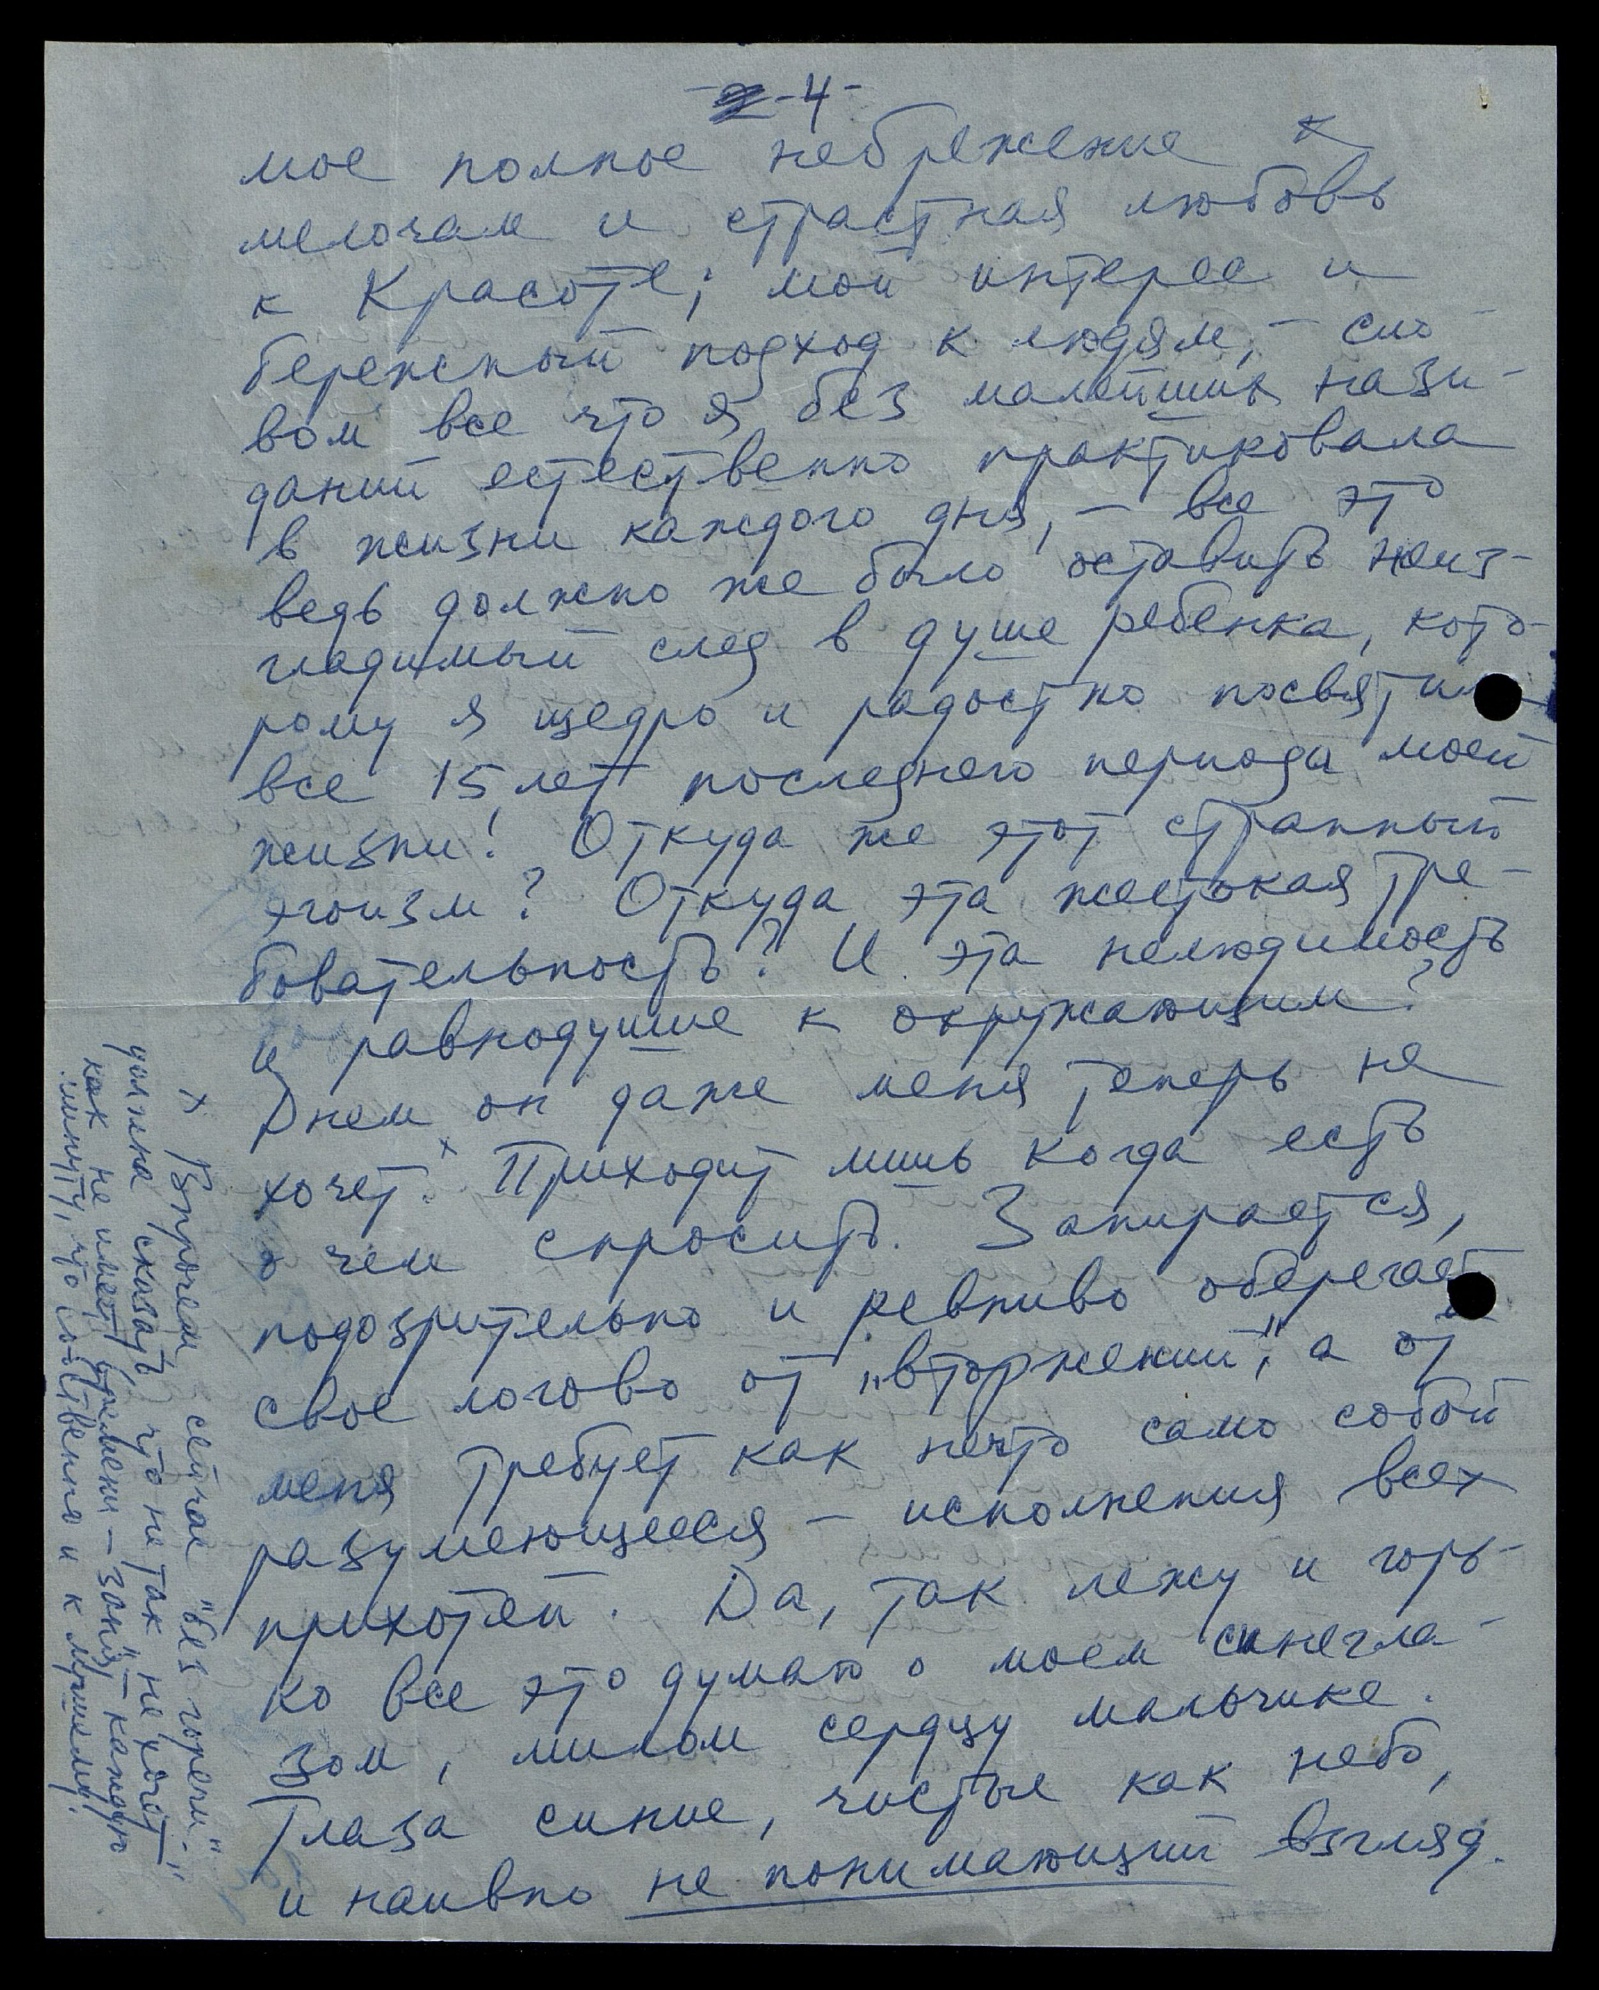 -4-
мое полное небрежение к
мелочам и страстная любовь
к Красоте; мой интерес и
бережный подход к людям, – сло-
вом все что я без малейших нази-
даний естественно практиковала
в жизни каждого дня, – все это
ведь должно же было оставить неиз-
гладимый след в душе ребенка, кото-
рому я щедро и радостно посвятила
все 15 лет последнего периода моей
жизни! Откуда же этот странный
эгоизм? Откуда эта жестокая тре-
бовательность? И эта нелюдимость
и равнодушие к окружающим?
Днем он даже меня теперь не
хочет.х Приходит лишь когда есть
о чем спросить. Запирается,
подозрительно и ревниво оберегает
свое логово от „вторжений", а от
меня требует как нечто само собой
разумеющееся – исполнения всех
прихотей. Да, так лежу и горь-
ко все это думаю о моем синегла-
зом, милом сердцу мальчике.
Глаза синие, чистые как небо,
и наивно не понимающий взгляд.
х Впрочем сейчас "без горечи"
должна сказать, что не так "не хочет"
как не имеет времени – занят каждую
минуту, что собственно и к лучшему.